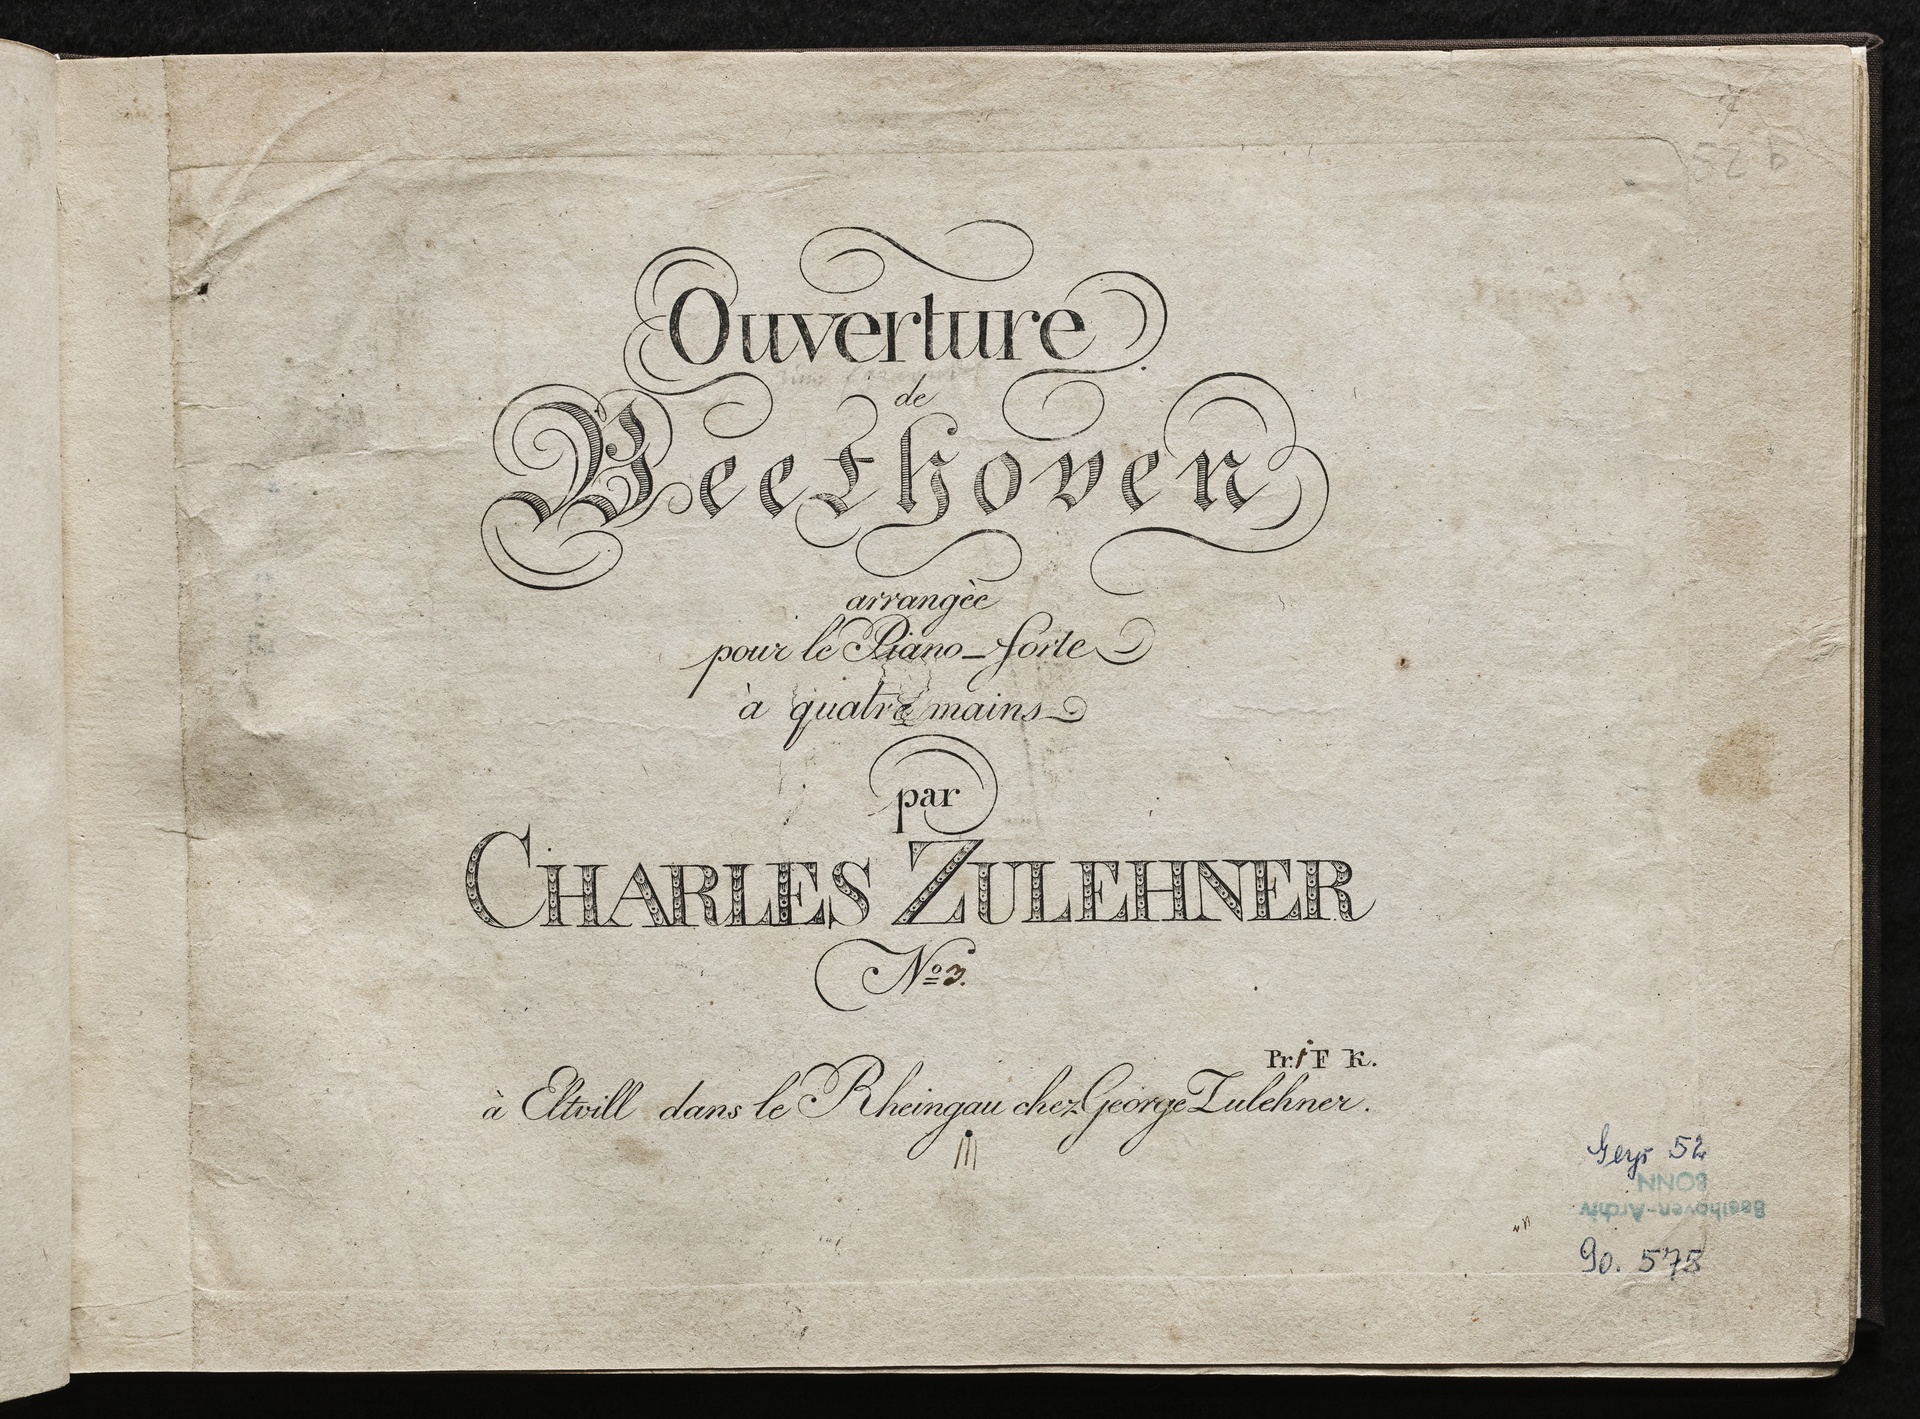 52 b
Ouverture
de
Beethoven
arrangèe
pour le Piano-forte
à quatre mains
par
CHARLES ZULEHNER
No 3.
Pr. 1 F K.
à Eltvill dans le Rheingau chez George Zulehner.
52
BONN
Beethoven-Archiv
90. 575